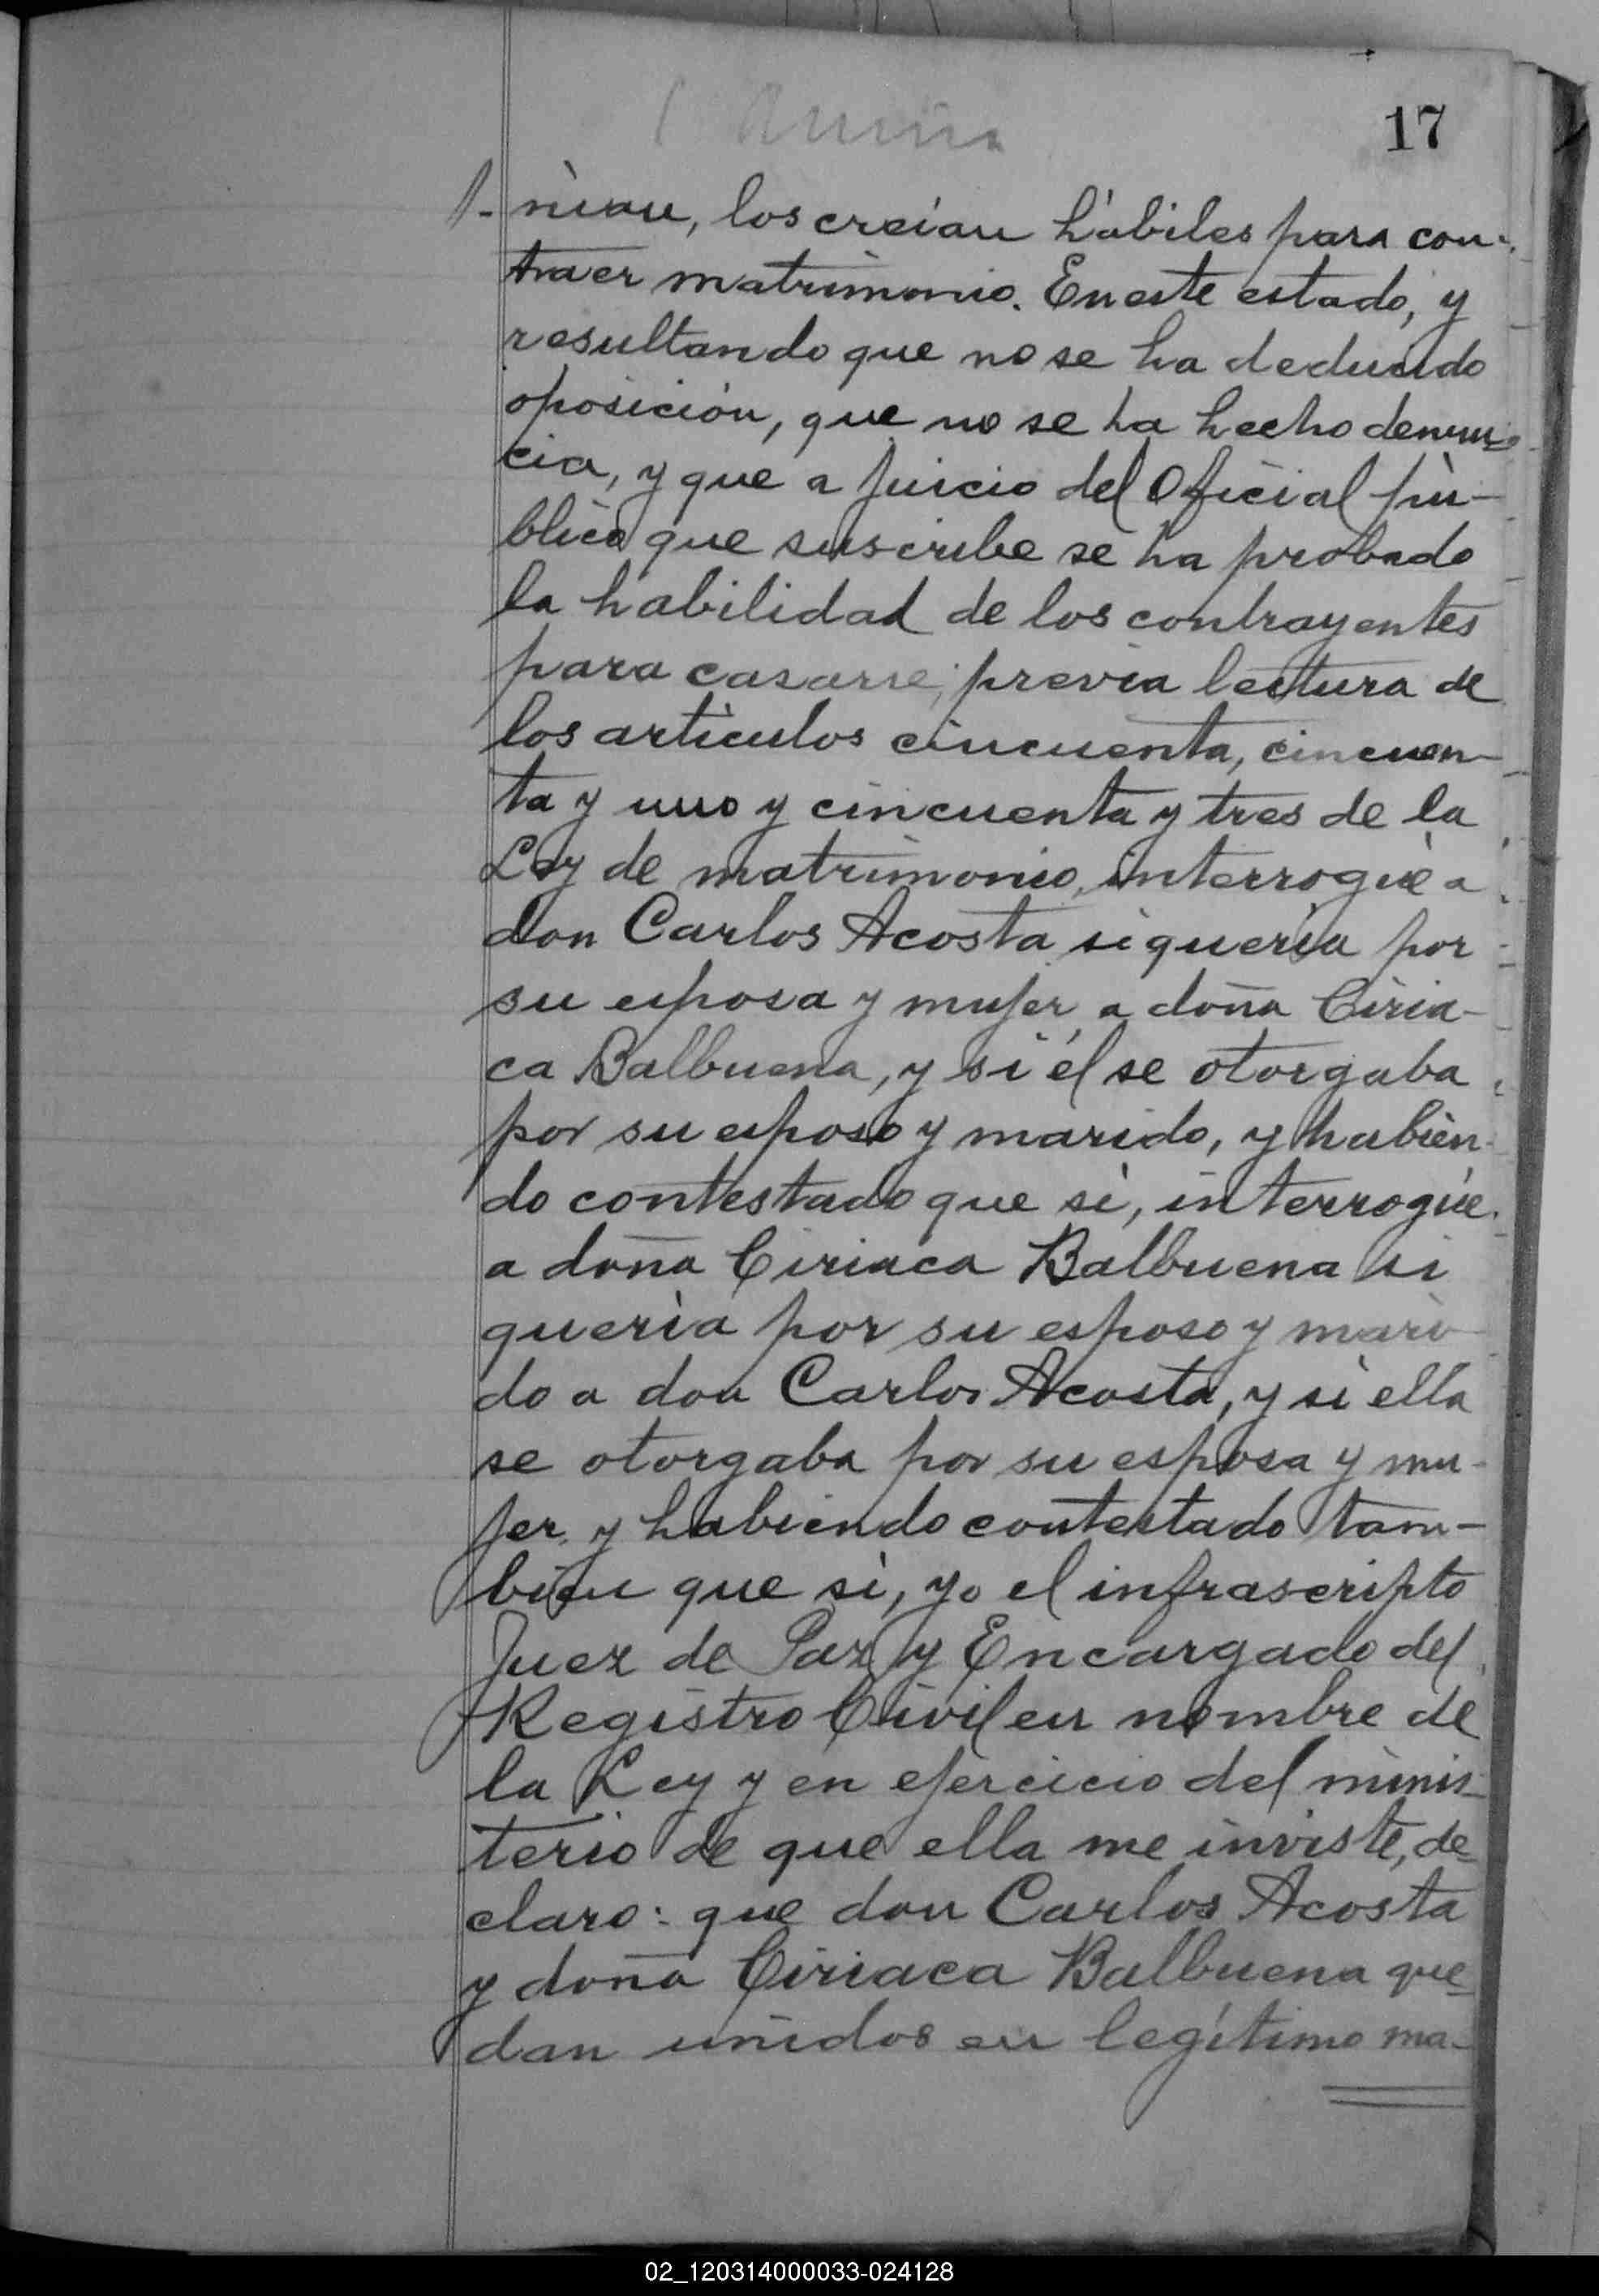 17
nian, los creían hábiles para con-
traer matrimonio. En este estado, y
resultando que no se ha deducido
oposición, que no se ha hecho denun-
cia, y que a juicio del Oficial pú-
blico que suscribe se ha probado
la habilidad de los contrayentes
para casarse; previa lectura de
los artículos cincuenta, cincuen-
ta y uno y cincuenta y tres de la
Ley de matrimonio, interrogué a
don Carlos Acosta si quería por
su esposa y mujer a doña Ciria-
ca Balbuena, y si él se otorgaba
por su esposo y marido, y habien-
do contestado que sí, interrogué
a doña Ciriaca Balbuena si
quería por su esposo y mari-
do a don Carlos Acosta, y si ella
se otorgaba por su esposa y mu-
jer, y habiendo contestado tam-
bién que sí, yo el infrascripto
Juez de Paz y Encargado del
Registro Civil en nombre de
la Ley y en ejercicio del minis-
terio de que ella me inviste, de-
claro: que don Carlos Acosta
y doña Ciriaca Balbuena que-
dan unidos en legítimo ma-
02_120314000033-024128